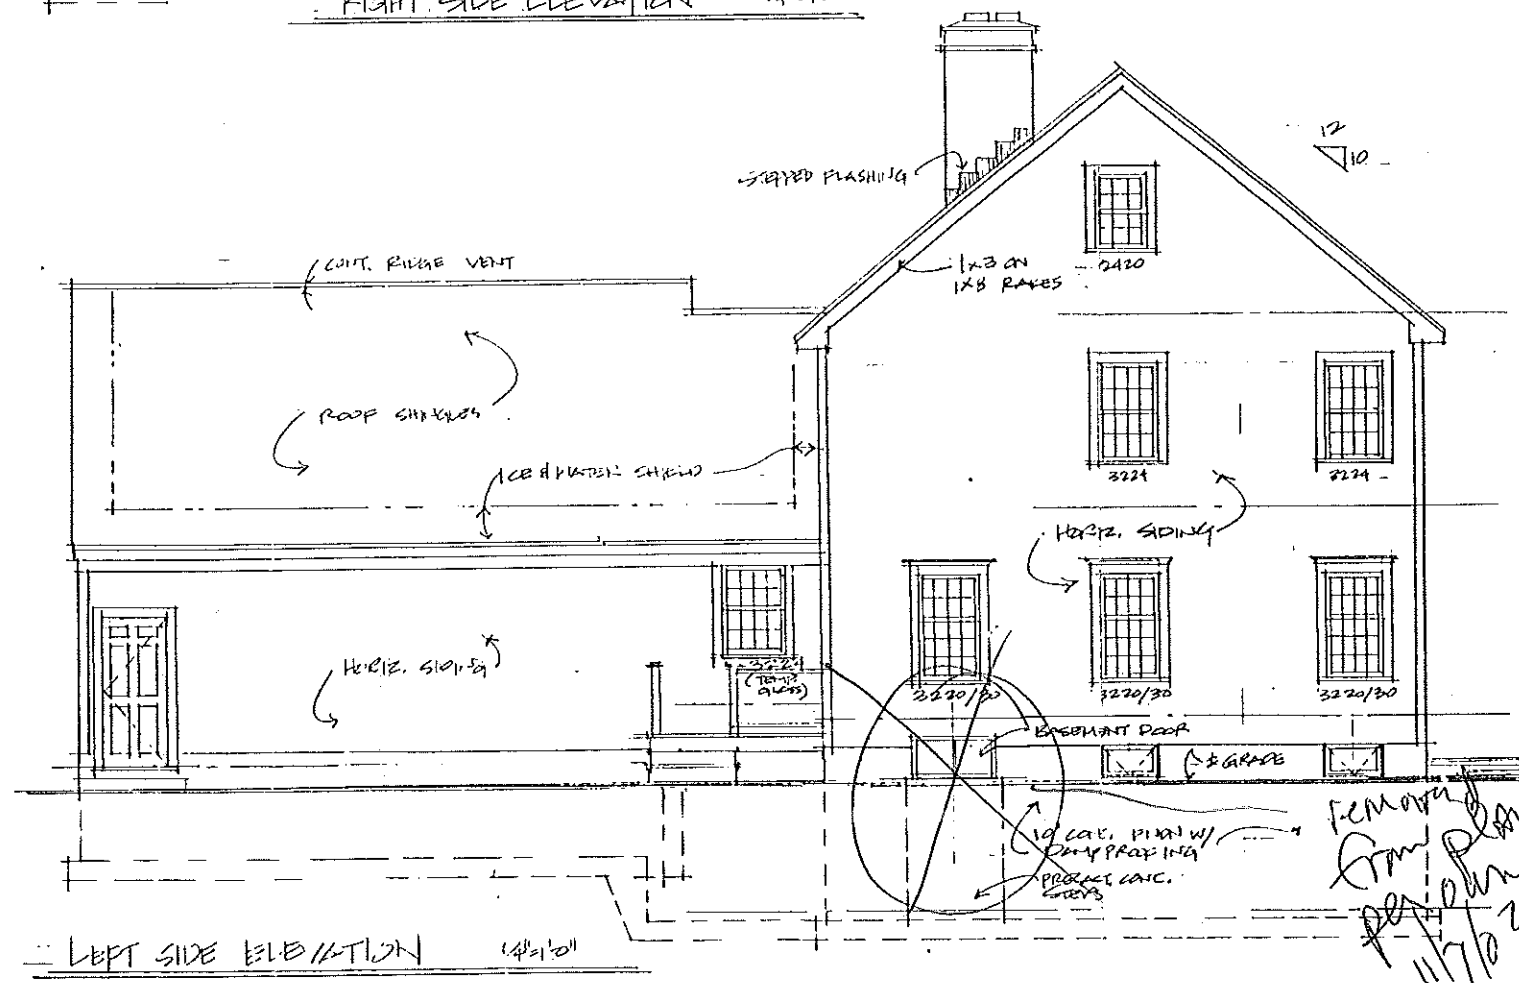 RIGHT SIDE ELEVATION
12
10
STEPPED FLASHING
CONT. RIDGE VENT
1x3 ON
1x8 RAKES
2420
ROOF SHINGLES
ICE & WATER SHIELD
3224
3224
HORIZ. SIDING
HORIZ. SIDING
3224
(TEMP.
GLASS)
3220/30
3220/30
3220/30
BASEMENT DOOR
± GRADE
10" CONC. FNDN W/
DAMPPROOFING
PRECAST CONC.
STEPS
removed
from plan
per own
11/7/02
LEFT SIDE ELEVATION 1/4"=1'0"